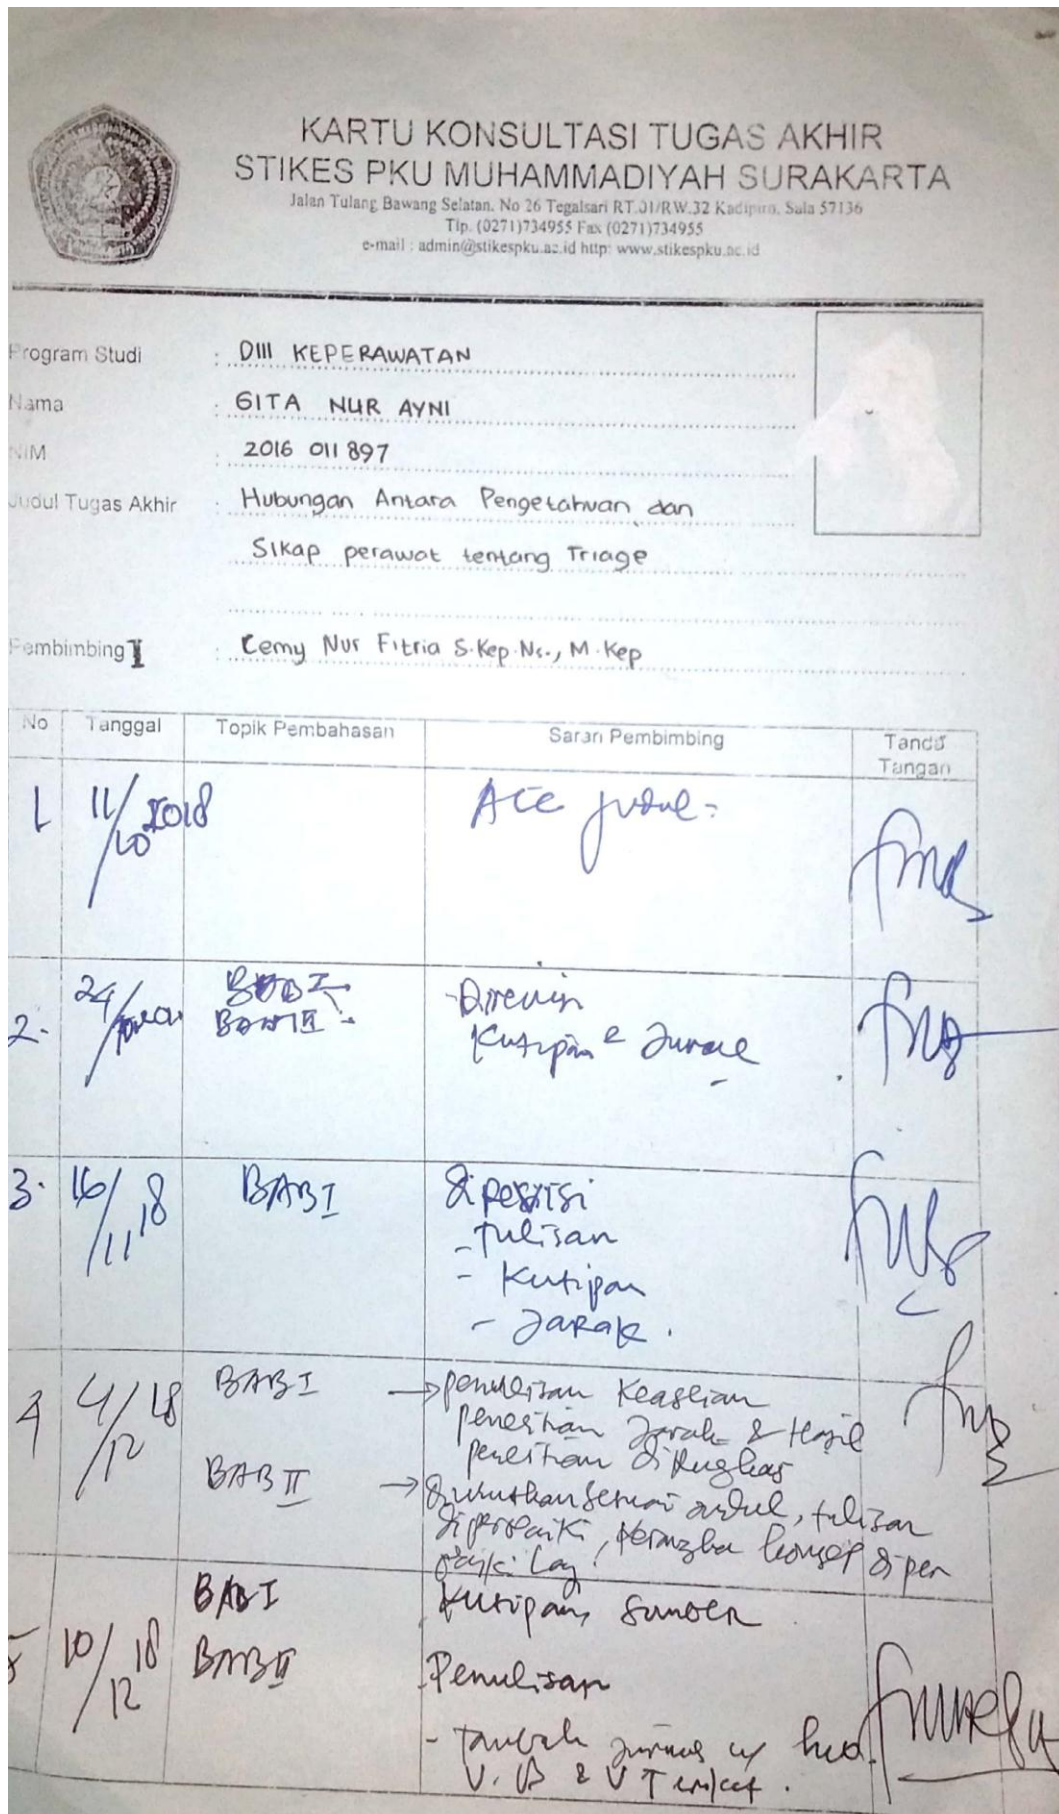 KARTU KONSULTASI TUGAS AKHIR
STIKES PKU MUHAMMADIYAH SURAKARTA
Jalan Tulang Bawang Selatan. No 26 Tegalsari RT.01/RW.32 Kadipiro. Sala 57136
Tlp. (0271)734955 Fax (0271)734955
e-mail : admin@stikespku.ac.id http: www.stikespku.ac.id
Program Studi : DIII KEPERAWATAN
Nama : GITA NUR AYNI
NIM : 2016 011 897
Judul Tugas Akhir : Hubungan Antara Pengetahuan dan
Sikap perawat tentang Triage
Pembimbing I : Cemy Nur Fitria S.Kep.Ns., M.Kep
No Tanggal Topik Pembahasan Saran Pembimbing Tanda Tangan
1 11/10 2018 ACC judul -
2. 24/ BAB I
BAB II - Direvisi
Kutipan & Jurnal
3. 16/11 18 BAB I direvisi
- tulisan
- Kutipan
- Jarak.
4 4/12 18 BAB I → penulisan Keaslian
penelitian Jarak & Hasil
penelitian diringkas
BAB II → diurutkan sesuai judul, tulisan
diperbaiki, kerangka konsep diper
baiki lag!
5 10/12 18 BAB I Kutipan, Sumber
BAB II Penulisan
- tambah jurnal u/
V. B & V Terikat.